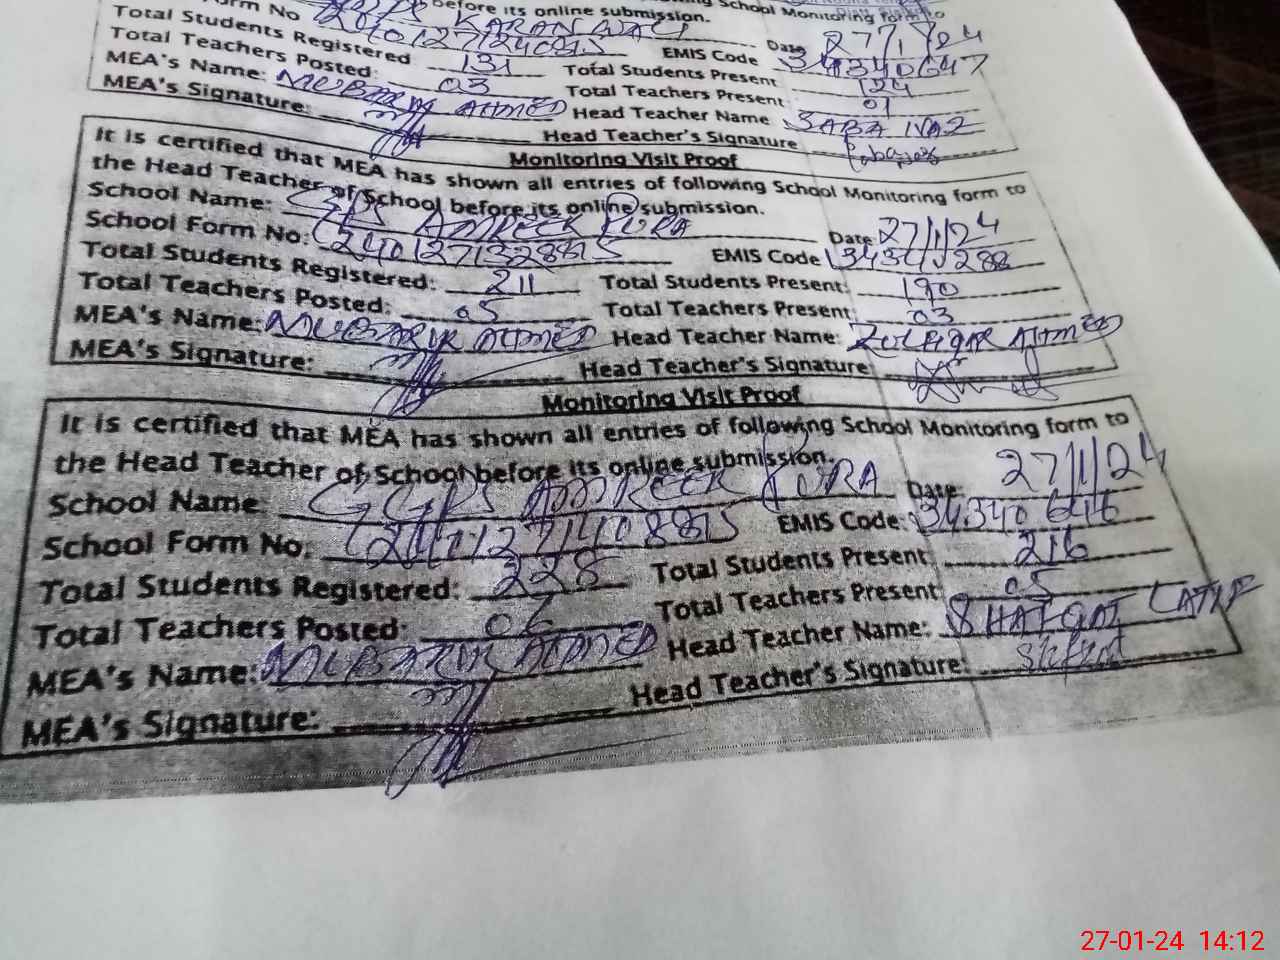 School Monitoring form to
before its online submission.
Form No Date 27/1/24
Total Students Registered 131 EMIS Code 34340647
Total Teachers Posted: 03 Total Students Present 124
MEA's Name: MUBARIK AHMED Total Teachers Present 01
MEA's Signature: Head Teacher Name SABA NAZ
Head Teacher's Signature
Monitoring Visit Proof
It is certified that MEA has shown all entries of following School Monitoring form to
the Head Teacher of School before its online submission.
School Name: GPS AMREEK PURA Date 27/1/24
School Form No: EMIS Code
Total Students Registered: 211 Total Students Present: 190
Total Teachers Posted: 05 Total Teachers Present: 03
MEA's Name: MUBARIK AHMED Head Teacher Name: ZULFIQAR AHMED
MEA's Signature: Head Teacher's Signature
Monitoring Visit Proof
It is certified that MEA has shown all entries of following School Monitoring form to
the Head Teacher of School before its online submission.
School Name: GGPS AMREEK PURA Date: 27/1/24
School Form No: EMIS Code: 34340646
Total Students Registered: 228 Total Students Present 216
Total Teachers Posted: 06 Total Teachers Present 05
MEA's Name: MUBARIK AHMED Head Teacher Name: LATIF
MEA's Signature: Head Teacher's Signature:
27-01-24 14:12